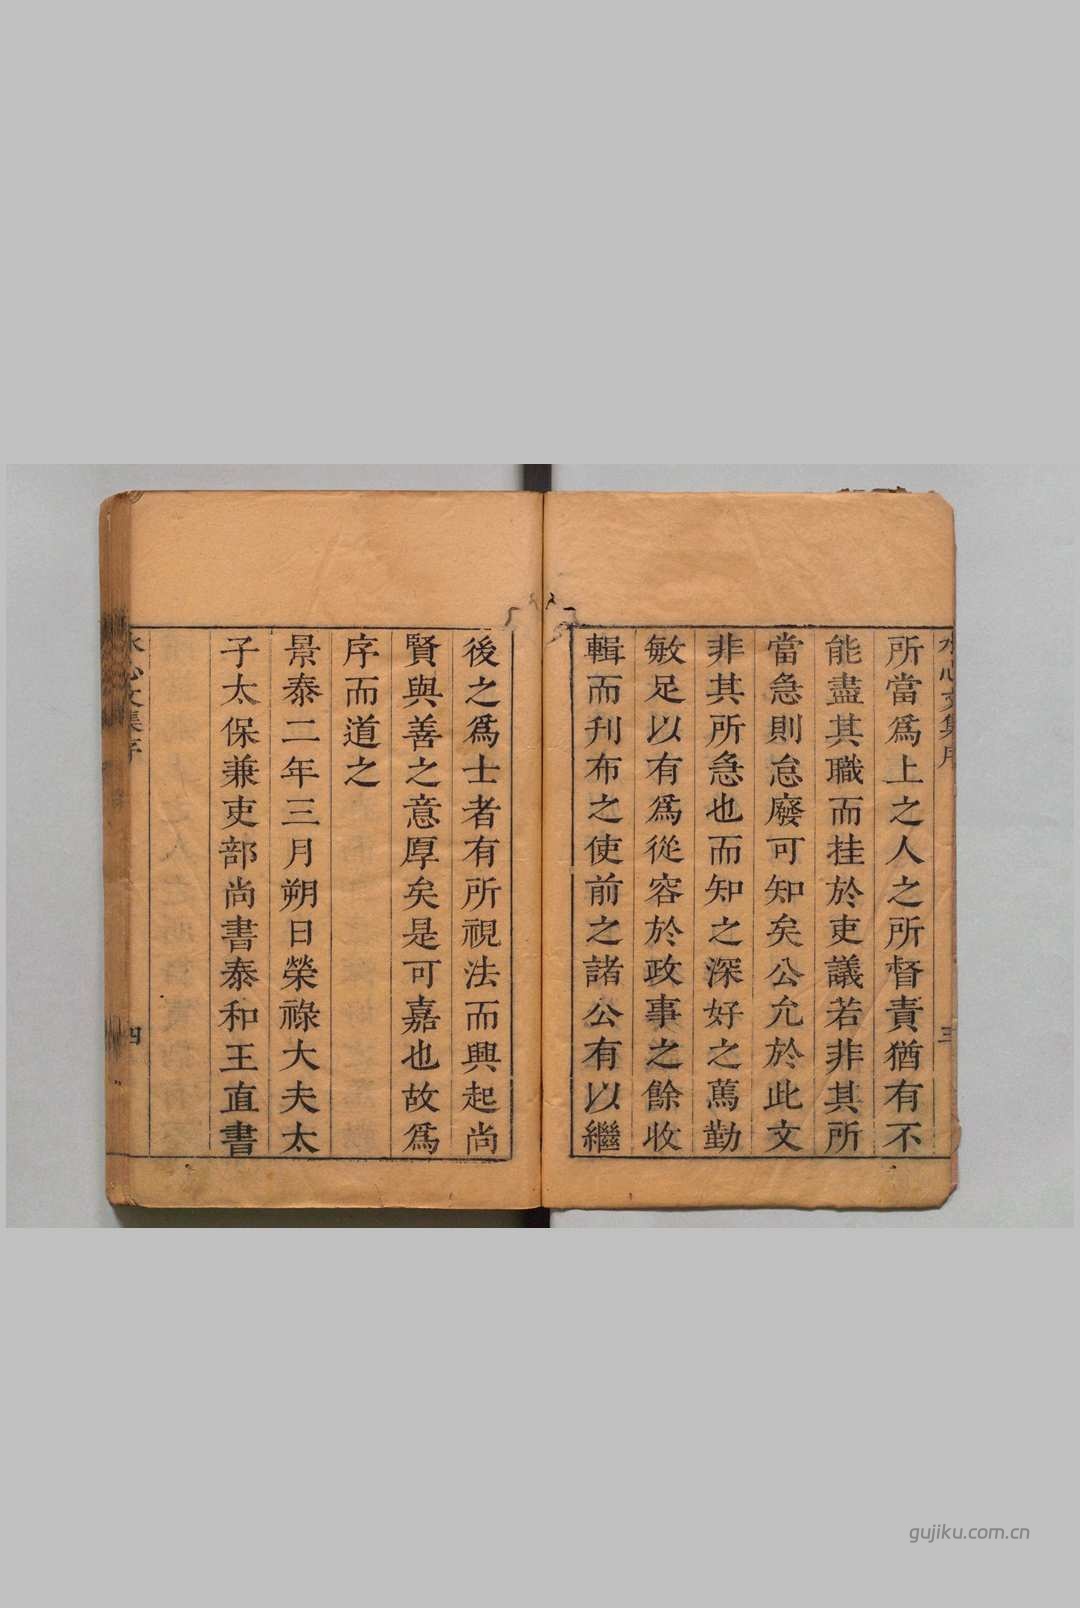 水心文集序
三
所當爲上之人之所督責猶有不
能盡其職而挂於吏議若非其所
當急則怠廢可知矣公允於此文
非其所急也而知之深好之篤勤
敏足以有爲從容於政事之餘收
輯而刊布之使前之諸公有以繼
後之爲士者有所視法而興起尚
賢與善之意厚矣是可嘉也故爲
序而道之
景泰二年三月朔日榮祿大夫太
子太保兼吏部尚書泰和王直書
水心文集序
四
gujiku.com.cn